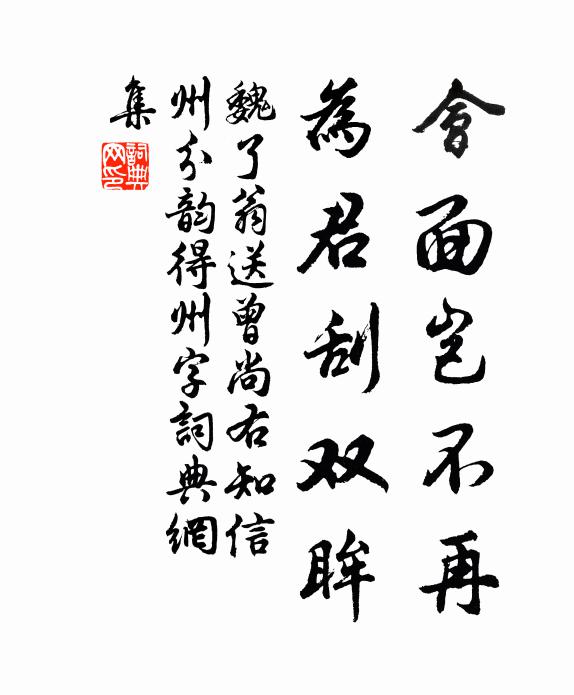 會面岂不再
為君刮双眸
魏了翁送曾尚右知信
州分韵得州字詞典網
集
詞典网印